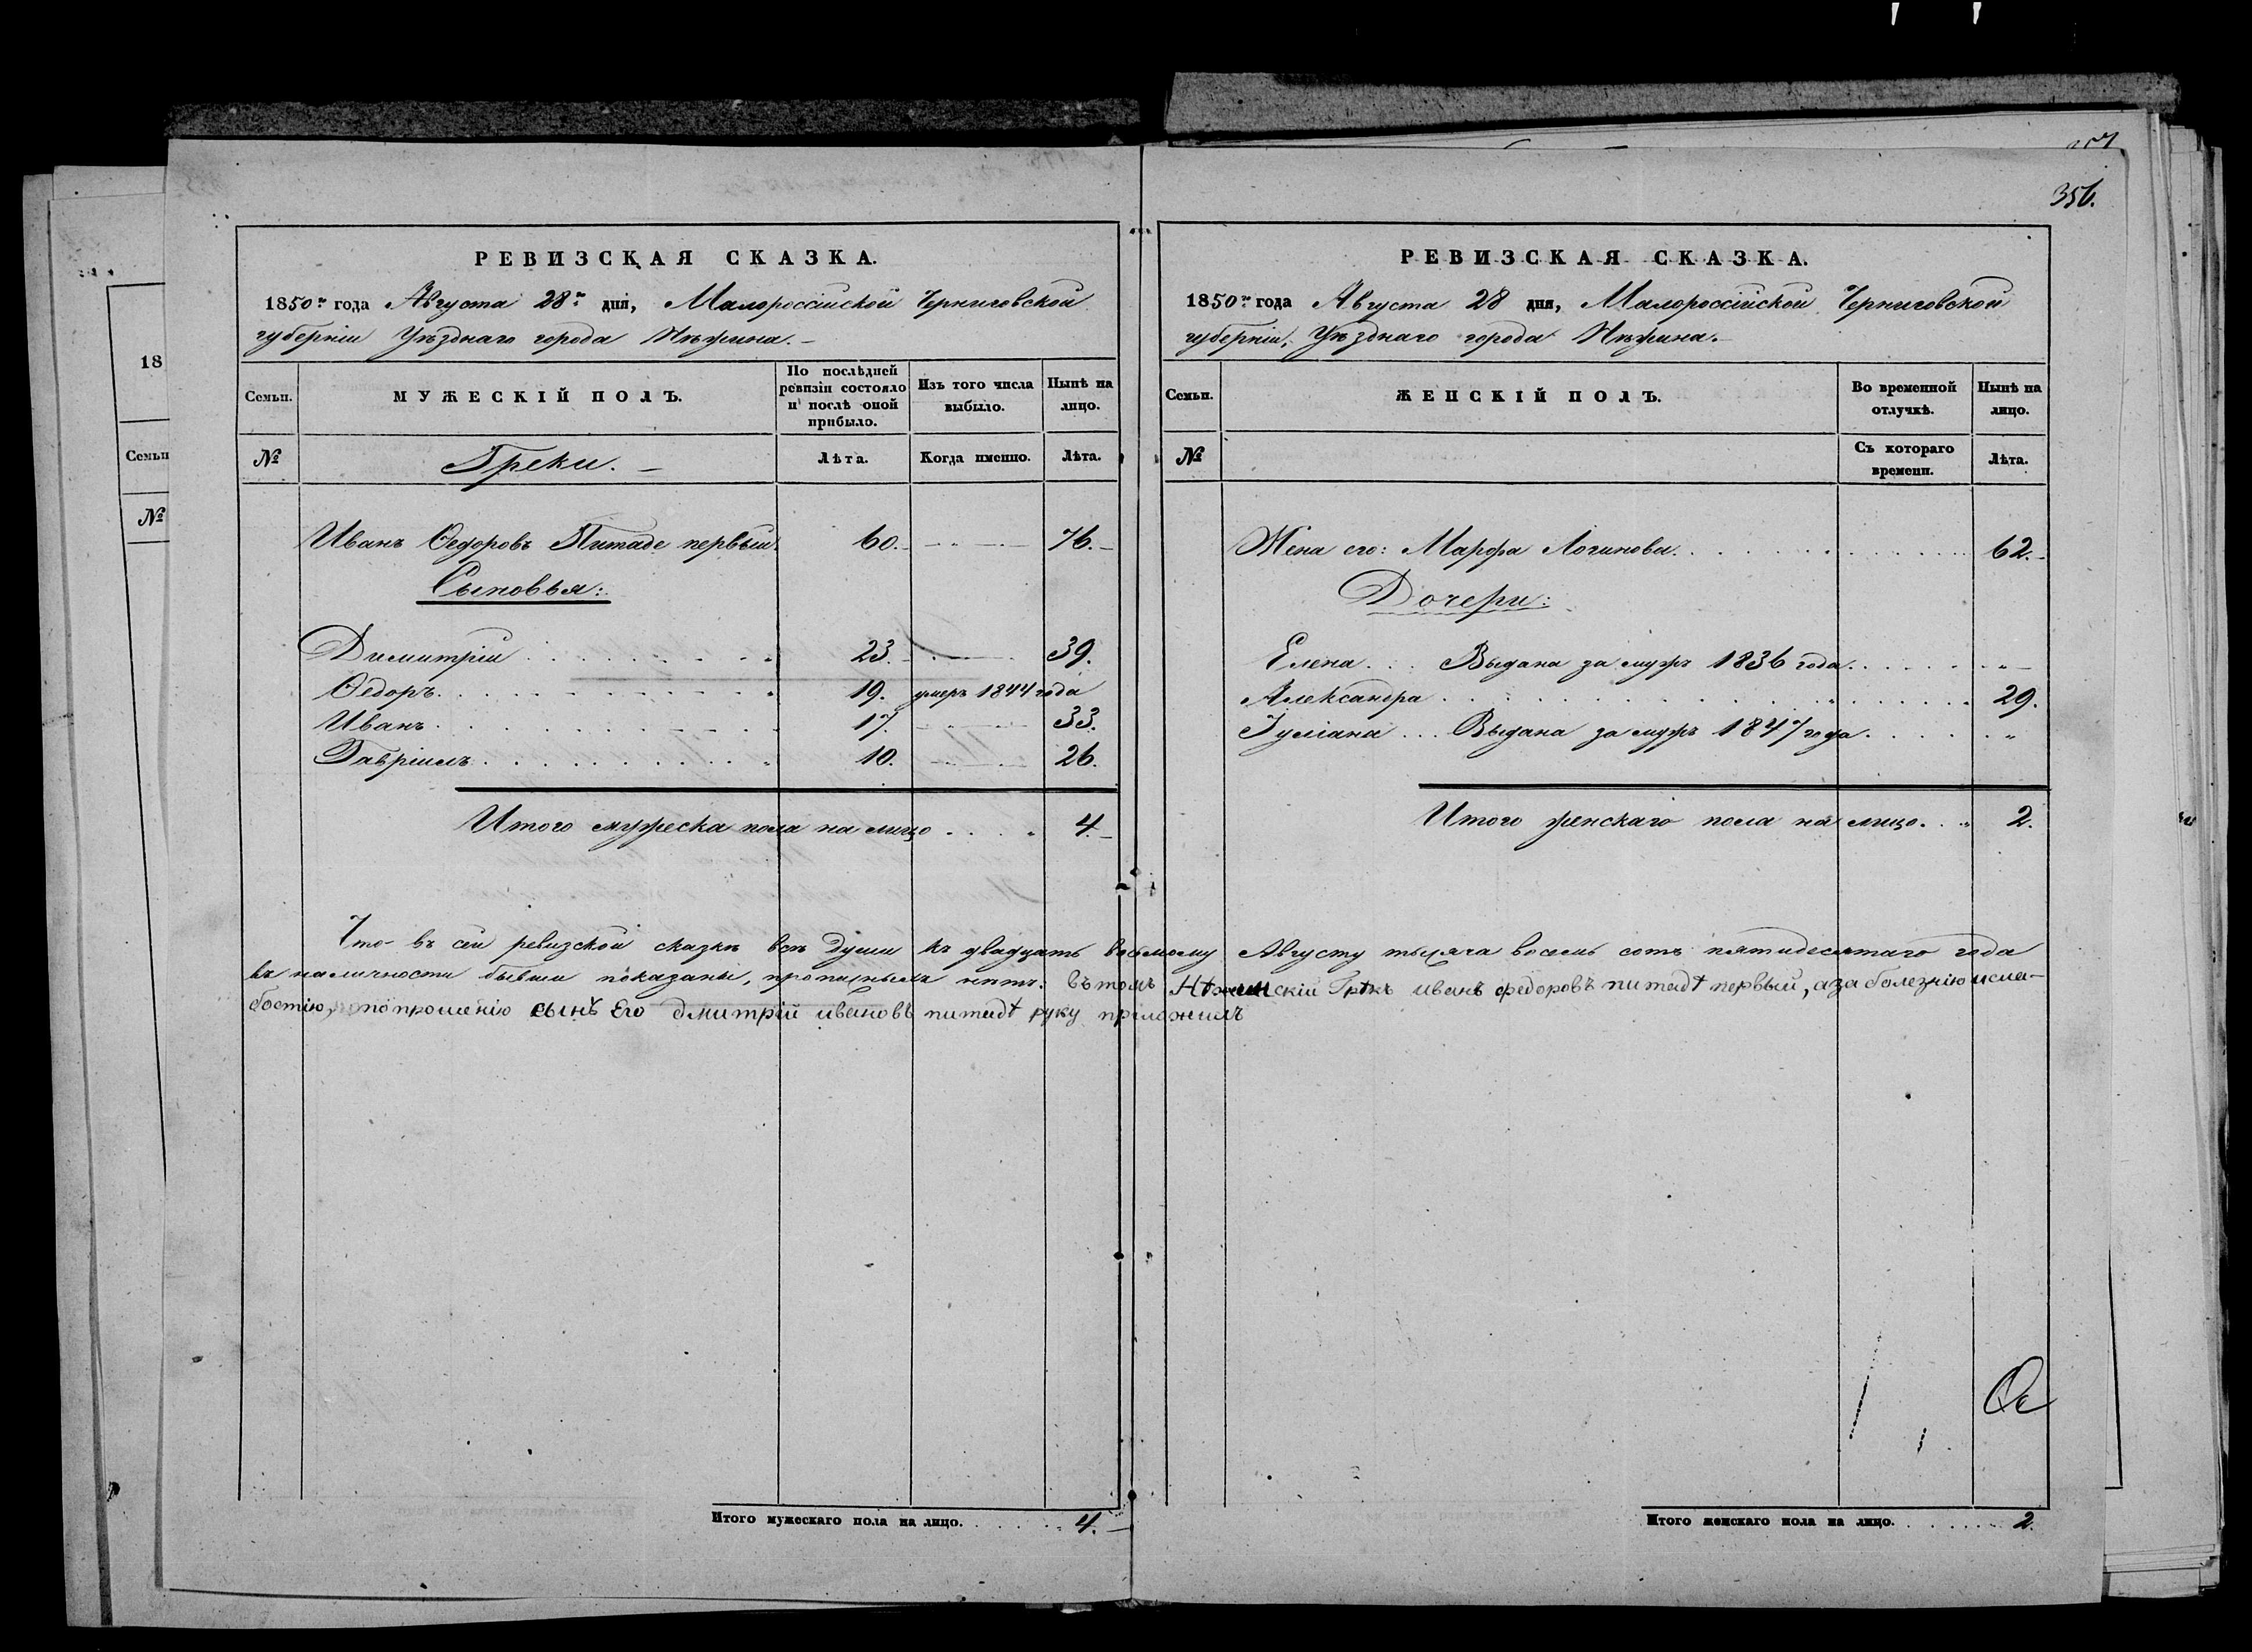 356.
РЕВИЗСКАЯ СКАЗКА.
1850го года Августа 28го дня, Малороссійской Черниговской
губерніи Уѣзднаго города Нѣжина.
Семьи.
МУЖЕСКІЙ ПОЛЪ.
По послѣдней ревизіи состояло и послѣ оной прибыло.
Изъ того числа выбыло.
Нынѣ на лицо.
№
Греки.
Лѣта.
Когда именно.
Лѣта.
Иванъ Ѳедоровъ Питаде первый. 60. 76.
Сыновья:
Димитрій 23. 39.
Ѳедоръ 19. умеръ 1844 года
Иванъ 17. 33.
Гавріилъ 10. 26.
Итого мужеска пола на лицо 4.
Итого мужескаго пола на лицо. 4.
РЕВИЗСКАЯ СКАЗКА.
1850го года Августа 28 дня, Малороссійской Черниговской
губерніи, Уѣзднаго города Нѣжина.
Семьи.
ЖЕНСКІЙ ПОЛЪ.
Во временной отлучкѣ.
Нынѣ на лицо.
№
Съ котораго времени.
Лѣта.
Жена его: Марфа Логинова 62.
Дочери:
Елена Выдана за мужъ 1836 года
Александра 29.
Іуліана Выдана за мужъ 1847 года
Итого женскаго пола на лицо 2.
Что въ сей ревизской сказкѣ всѣ души къ двадцать восьмому Августу тысяча восемь сотъ пятидесятаго года
въ наличности бывши показаны, прописныхъ нѣтъ: въ томъ Нѣженскій Грѣкъ иванъ федоровъ питадѣ первый, а за болезнію и сла-
бостію, по прошенію сынъ Его дмитрій ивановъ питадѣ руку приложилъ
Итого женскаго пола на лицо. 2.
18
Семьи
№